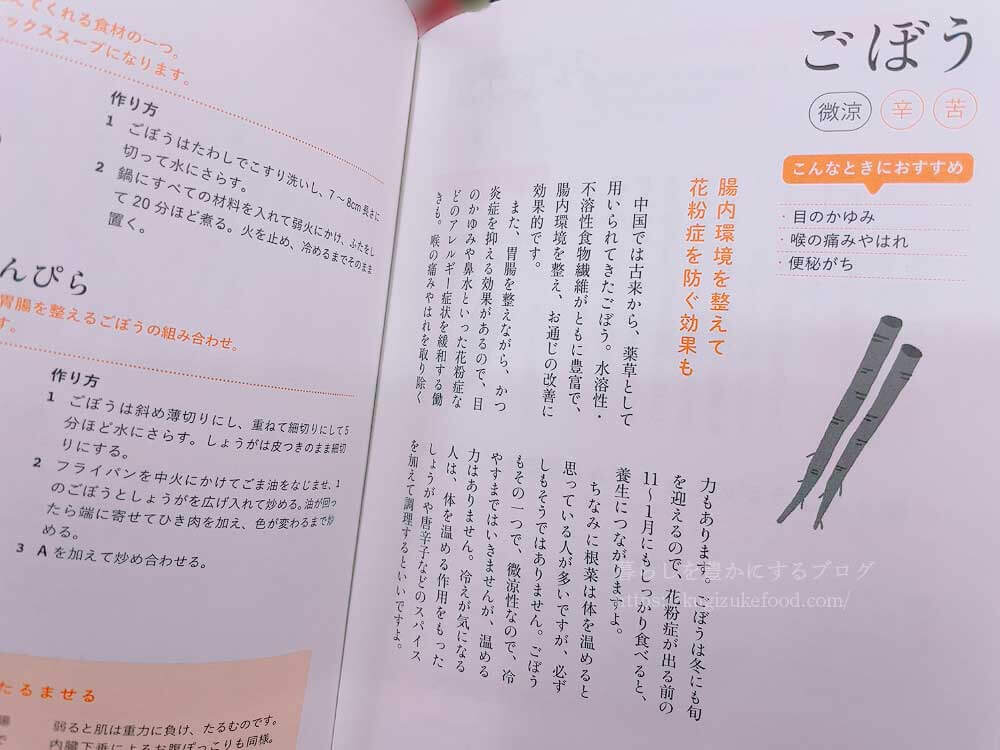 えてくれる食材の一つ。
ックススープになります。
作り方
1 ごぼうはたわしでこすり洗いし、7〜8cm長さに
切って水にさらす。
2 鍋にすべての材料を入れて弱火にかけ、ふたをし
て20分ほど煮る。火を止め、冷めるまでそのまま
置く。
んぴら
胃腸を整えるごぼうの組み合わせ。
す。
作り方
1 ごぼうは斜め薄切りにし、重ねて細切りにして5
分ほど水にさらす。しょうがは皮つきのまま細切
りにする。
2 フライパンを中火にかけてごま油をなじませ、1
のごぼうとしょうがを広げ入れて炒める。油が回っ
たら端に寄せてひき肉を加え、色が変わるまで炒
める。
3 Aを加えて炒め合わせる。
たるませる
弱ると肌は重力に負け、たるむのです。
内臓下垂によるお腹ぽっこりも同様。
ごぼう
微涼 辛 苦
こんなときにおすすめ
・目のかゆみ
・喉の痛みやはれ
・便秘がち
腸内環境を整えて
花粉症を防ぐ効果も
中国では古来から、薬草として
用いられてきたごぼう。水溶性・
不溶性食物繊維がともに豊富で、
腸内環境を整え、お通じの改善に
効果的です。
また、胃腸を整えながら、かつ
炎症を抑える効果があるので、目
のかゆみや鼻水といった花粉症な
どのアレルギー症状を緩和する働
きも。喉の痛みやはれを取り除く
力もあります。ごぼうは冬にも旬
を迎えるので、花粉症が出る前の
11〜1月にもしっかり食べると、
養生につながりますよ。
ちなみに根菜は体を温めると
思っている人が多いですが、必ず
しもそうではありません。ごぼう
もその一つで、微涼性なので、冷
やすまではいきませんが、温める
力はありません。冷えが気になる
人は、体を温める作用をもった
しょうがや唐辛子などのスパイス
を加えて調理するといいですよ。
暮らしを豊かにするブログ